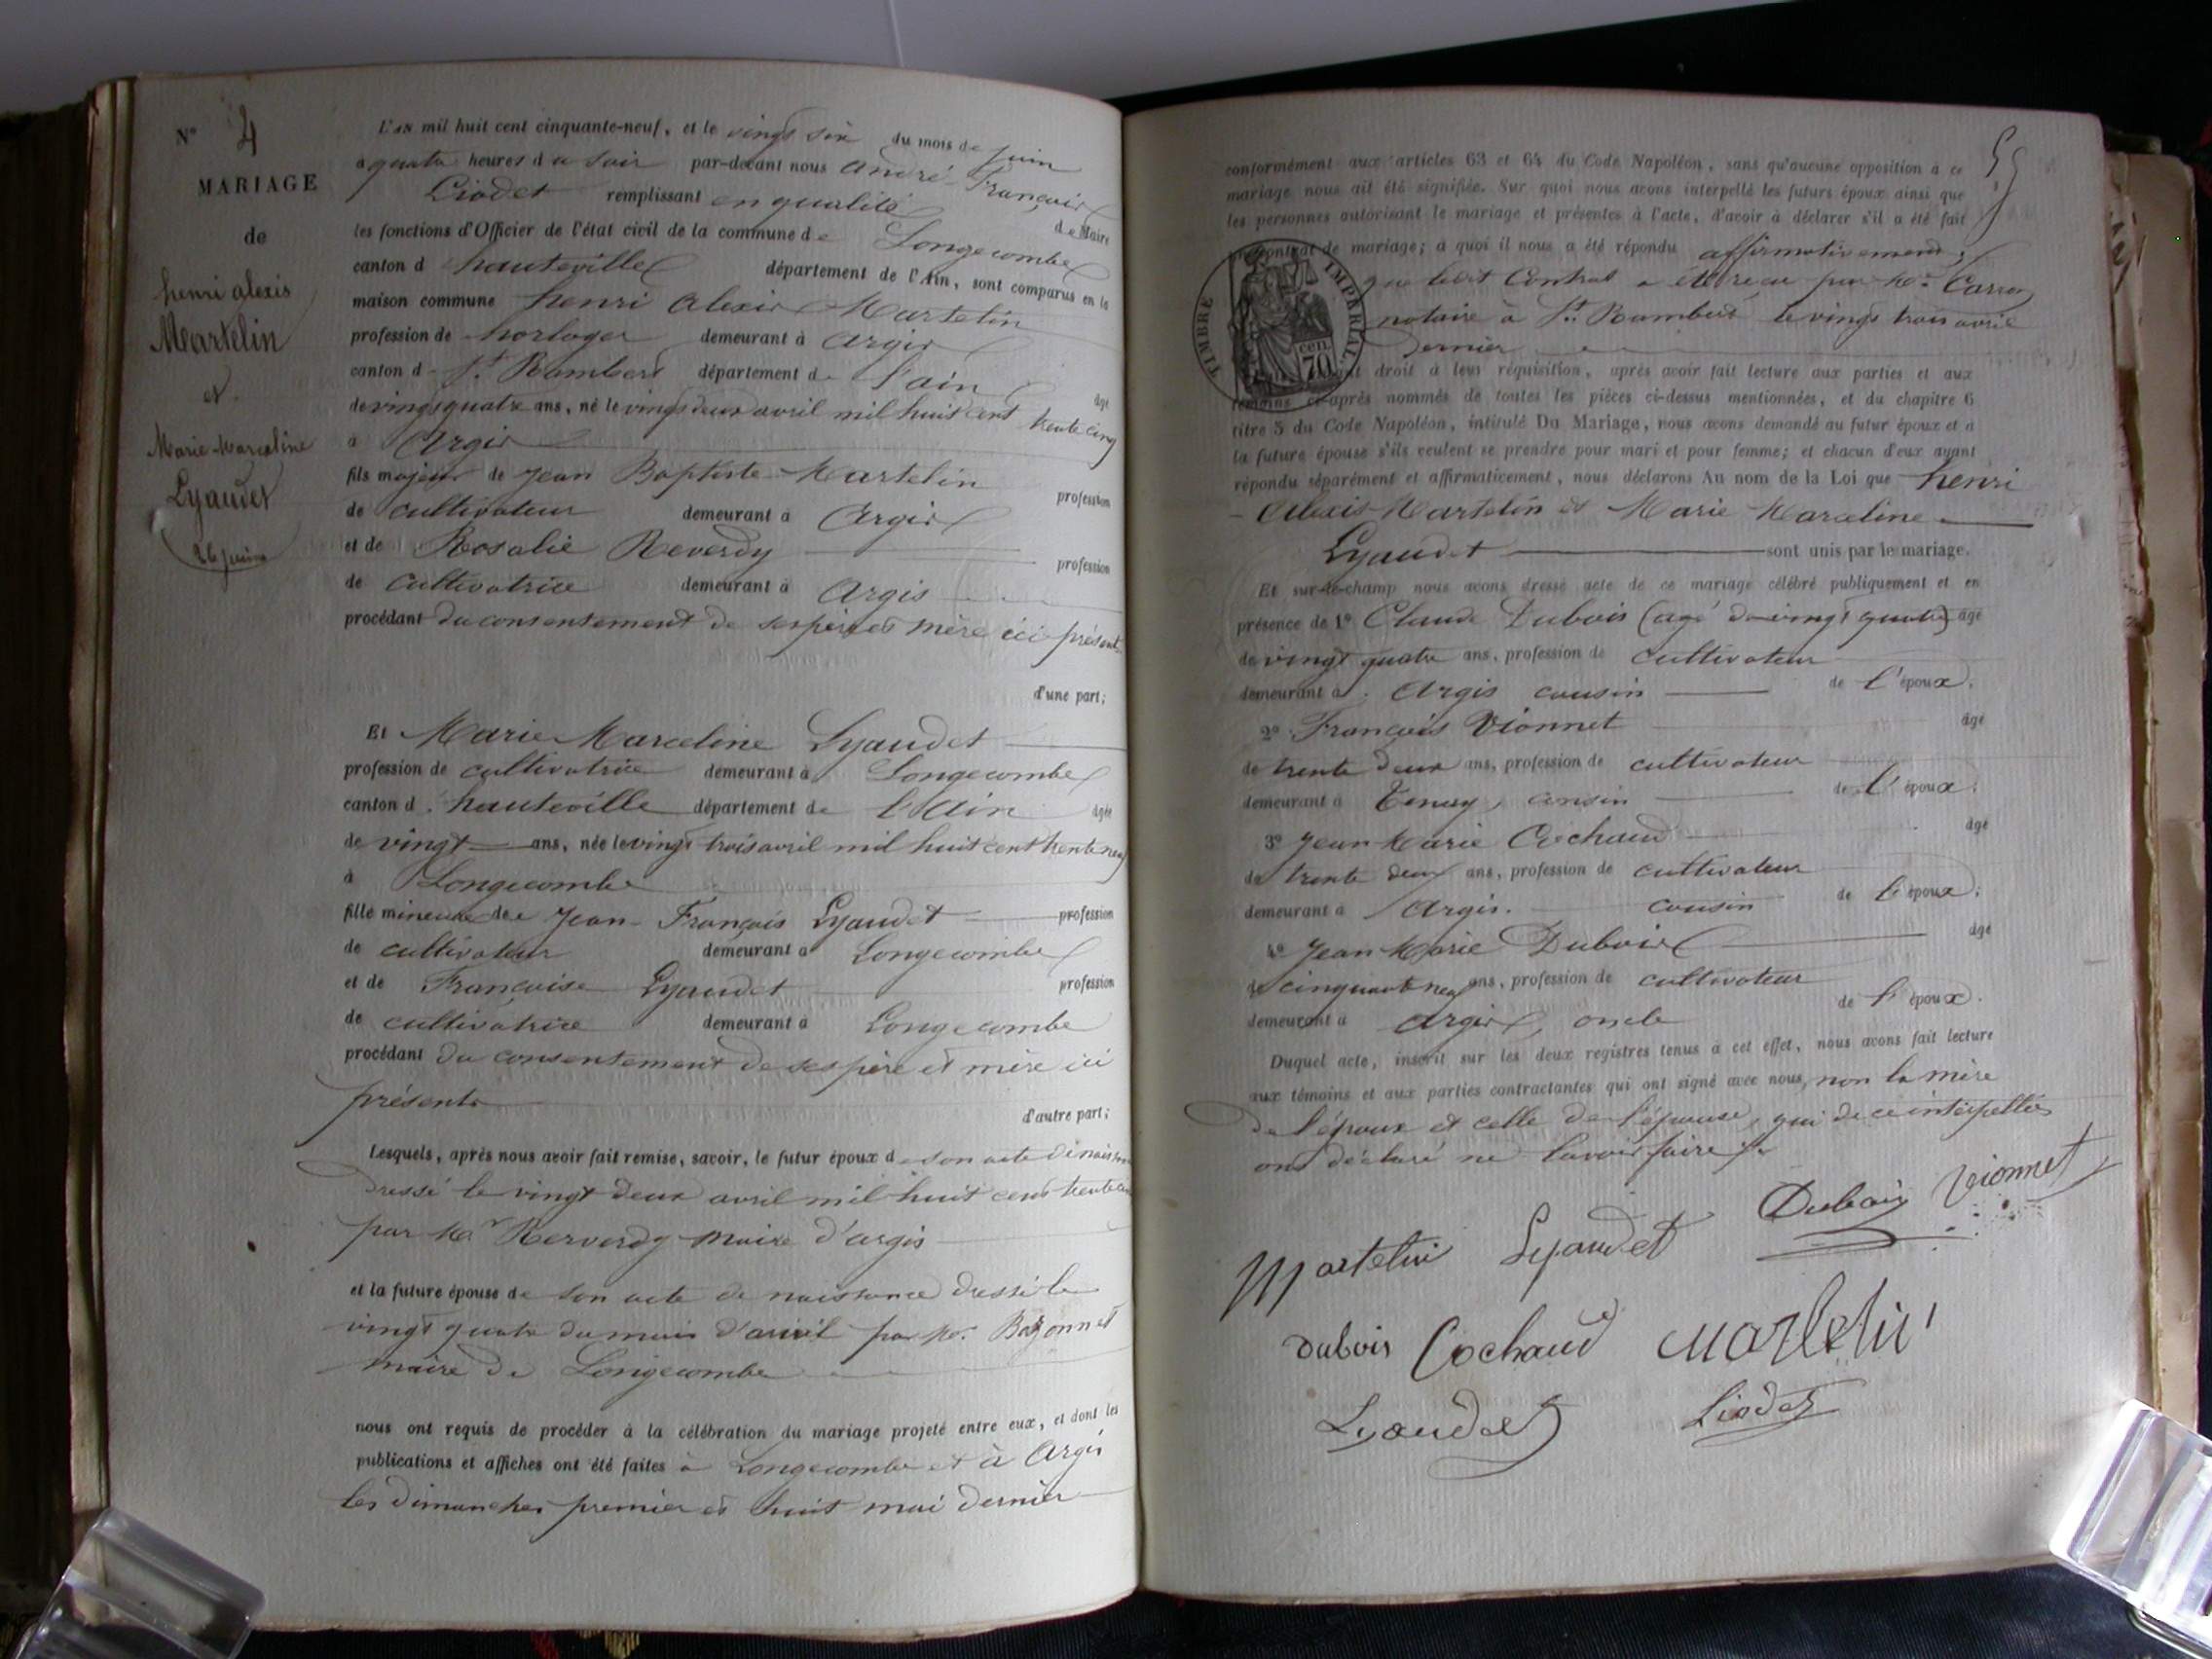 N° 4
MARIAGE
de
henri alexis
Martelin
et
Marie Marceline
Lyaudet
26 juin
L'AN mil huit cent cinquante-neuf, et le vingt six du mois de juin
à quatre heures du soir par-devant nous André François
Liodet remplissant en qualité de Maire
les fonctions d'Officier de l'état civil de la commune de Longecombe
canton d hauteville département de l'Ain, sont comparus en la
maison commune henri Alexis Martelin
profession de horloger demeurant à Argis
canton d St. Rambert département de l'ain âgé
de vingt quatre ans, né le vingt deux avril mil huit cent trente cinq
à Argis
fils majeur de Jean Baptiste Martelin profession
de cultivateur demeurant à Argis
et de Rosalie Reverdy profession
de cultivatrice demeurant à Argis
procédant du consentement de ses père et mère ici présents
d'une part;
Et Marie Marceline Lyaudet
profession de cultivatrice demeurant à Longecombe
canton d. hauteville département de l'Ain âgée
de vingt ans, née le vingt trois avril mil huit cent trente neuf
à Longecombe
fille mineure de Jean-François Lyaudet profession
de cultivateur demeurant à Longecombe
et de Françoise Lyaudet profession
de cultivatrice demeurant à Longecombe
procédant du consentement de ses père et mère ici
présents
d'autre part;
Lesquels, après nous avoir fait remise, savoir, le futur époux de son acte de naissance
dressé le vingt deux avril mil huit cent trente cinq
par Mr Rerverdy maire d'argis
et la future épouse de son acte de naissance dressé le
vingt quatre du mois d'avril par Mr. Bozonnet
maire de Longecombe
nous ont requis de procéder à la célébration du mariage projeté entre eux, et dont les
publications et affiches ont été faites à Longecombe et à Argis
les dimanches premier et huit mai dernier
55
conformément aux articles 63 et 64 du Code Napoléon, sans qu'aucune opposition à ce
mariage nous ait été signifiée. Sur quoi nous avons interpellé les futurs époux ainsi que
les personnes autorisant le mariage et présentes à l'acte, d'avoir à déclarer s'il a été fait
contrat de mariage; à quoi il nous a été répondu affirmativement;
que ledit Contrat a été reçu par Me. Carron
notaire à St. Rambert le vingt trois avril
dernier
TIMBRE IMPÉRIAL
CEN. 70
droit à leur réquisition, après avoir fait lecture aux parties et aux
témoins ci-après nommés de toutes les pièces ci-dessus mentionnées, et du chapitre 6
titre 5 du Code Napoléon, intitulé Du Mariage, nous avons demandé au futur époux et à
la future épouse s'ils veulent se prendre pour mari et pour femme; et chacun d'eux ayant
répondu séparément et affirmativement, nous déclarons Au nom de la Loi que henri
Alexis Martelin et Marie Marceline
Lyaudet sont unis par le mariage.
Et sur-le-champ nous avons dressé acte de ce mariage célébré publiquement et en
présence de 1° Claude Dubois (agé de vingt quatre) âgé
de vingt quatre ans, profession de cultivateur
demeurant à Argis cousin de l'époux.
2° François Vionnet âgé
de trente deux ans, profession de cultivateur
demeurant à Tenay, cousin de l'époux;
3° Jean Marie Cochaud âgé
de trente deux ans, profession de cultivateur
demeurant à Argis. cousin de l'époux;
4° Jean Marie Dubois âgé
de cinquante neuf ans, profession de cultivateur
demeurant à Argis, oncle de l'époux.
Duquel acte, inscrit sur les deux registres tenus à cet effet, nous avons fait lecture
aux témoins et aux parties contractantes qui ont signé avec nous, non la mère
de l'époux et celle de l'épouse, qui de ce interpellées
ont déclaré ne savoir faire
Martelin Lyaudet Dubois Vionnet
Dubois Cochaud Martelin
Lyaudet Liodet